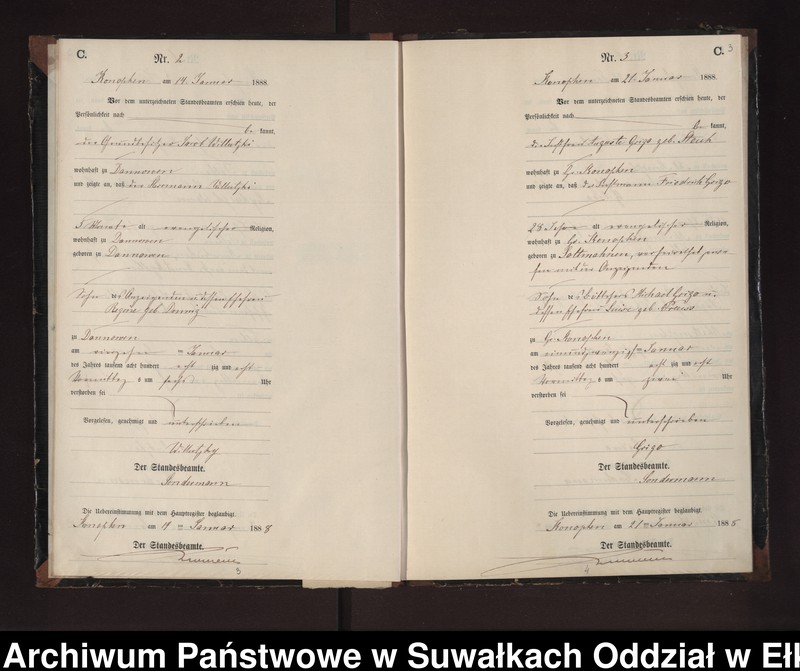 C.
Nr. 2
Konopken am 14. Januar 1888.
Vor dem unterzeichneten Standesbeamten erschien heute, der
Persönlichkeit nach
be kannt,
der Grundbesitzer Jacob
wohnhaft zu Dannowen
und zeigte an, daß der Hermann
5 Monate alt evangelischer Religion,
wohnhaft zu Dannowen
geboren zu Dannowen
Sohn des Anzeigenden u. dessen Ehefrau
Regine geb.
zu Dannowen
am vierzehn ten Januar
des Jahres tausend acht hundert acht zig und acht
Vormittag s um sechs Uhr
verstorben sei
Vorgelesen, genehmigt und unterschrieben
Der Standesbeamte.
Sondermann
Die Uebereinstimmung mit dem Hauptregister beglaubigt
Konopken am 14 ten Januar 1888
Der Standesbeamte.
3
Nr. 3
C. 3
Konopken am 21. Januar 1888.
Vor dem unterzeichneten Standesbeamten erschien heute, der
Persönlichkeit nach
be kannt,
die Auguste Grigo geb.
wohnhaft zu Gr. Konopken
und zeigte an, daß der Friedrich Grigo
28 Jahre alt evangelischer Religion,
wohnhaft zu Gr. Konopken
geboren zu verheirathet gewe-
sen mit der Anzeigenden
Sohn des Böttchers Michael Grigo u.
dessen Ehefrau Luise geb.
zu Gr. Konopken
am einundzwanzigsten Januar
des Jahres tausend acht hundert acht zig und acht
Vormittag s um zwei Uhr
verstorben sei
Vorgelesen, genehmigt und unterschrieben
Grigo
Der Standesbeamte.
Sondermann
Die Uebereinstimmung mit dem Hauptregister beglaubigt
Konopken am 21 ten Januar 1888
Der Standesbeamte.
4
Archiwum Państwowe w Suwałkach Oddział w Ełk